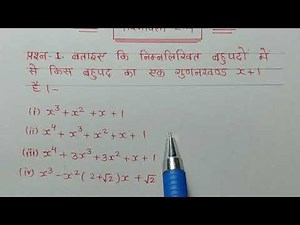 प्रश्न-1. बताइए कि निम्नलिखित बहुपदों में
से किस बहुपद का एक गुणनखण्ड x+1
है।-
(i) x³ + x² + x + 1
(ii) x⁴ + x³ + x² + x + 1
(iii) x⁴ + 3x³ + 3x² + x + 1
(iv) x³ - x² (2+√2)x + √2